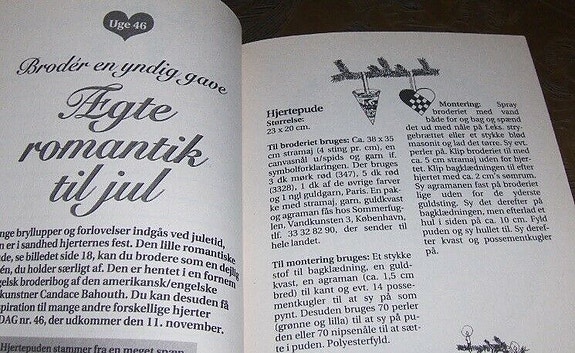 Uge 46
Brodér en yndig gave
Ægte
romantik
til jul
nge bryllupper og forlovelser indgås ved juletid,
n er i sandhed hjerternes fest. Den lille romantiske
de, se billedet side 18, kan du brodere som en dejlig
én, du holder særligt af. Den er hentet i en fornem
gelsk broderibog af den amerikansk/engelske
kunstner Candace Bahouth. Du kan desuden få
spiration til mange andre forskellige hjerter
DAG nr. 46, der udkommer den 11. november.
Hjertepuden stammer fra en meget
Hjertepude
Størrelse:
23 x 20 cm.
Til broderiet bruges: Ca. 38 x 35
cm stramaj (4 sting pr. cm), en
canvasnål u/spids og garn if.
symbolforklaringen. Der bruges
3 dk mørk rød (347), 5 dk rød
(3328), 1 dk af de øvrige farver
og 1 ngl guldgarn, Paris. En pak-
ke med stramaj, garn, guldkvast
og agraman fås hos Sommerfug-
len, Vandkunsten 3, København,
tlf. 33 32 82 90, der sender til
hele landet.
Til montering bruges: Et stykke
stof til bagklædning, en guld-
kvast, en agraman (ca. 1,5 cm
bred) til kant og evt. 14 posse-
mentkugler til at sy på som
pynt. Desuden bruges 70 perler
(grønne og lilla) til at sy på pu-
den eller 70 nipsenåle til at sæt-
te i puden. Polyesterfyld.
Montering: Spray
broderiet med vand
både for og bag og spænd
det ud med nåle på f.eks. stry-
gebrættet eller et stykke blød
masonit og lad det tørre. Sy evt.
perler på. Klip broderiet til med
ca. 5 cm stramaj uden for hjer-
tet. Klip bagklædningen til efter
hjertet med ca. 2 cm's sømrum.
Sy agramanen fast på broderiet
lige uden for de yderste
guldsting. Sy det derefter på
bagklædningen, men efterlad et
hul i siden på ca. 10 cm. Fyld
puden op og sy hullet til. Sy deref-
ter kvast og possementkugler
på.